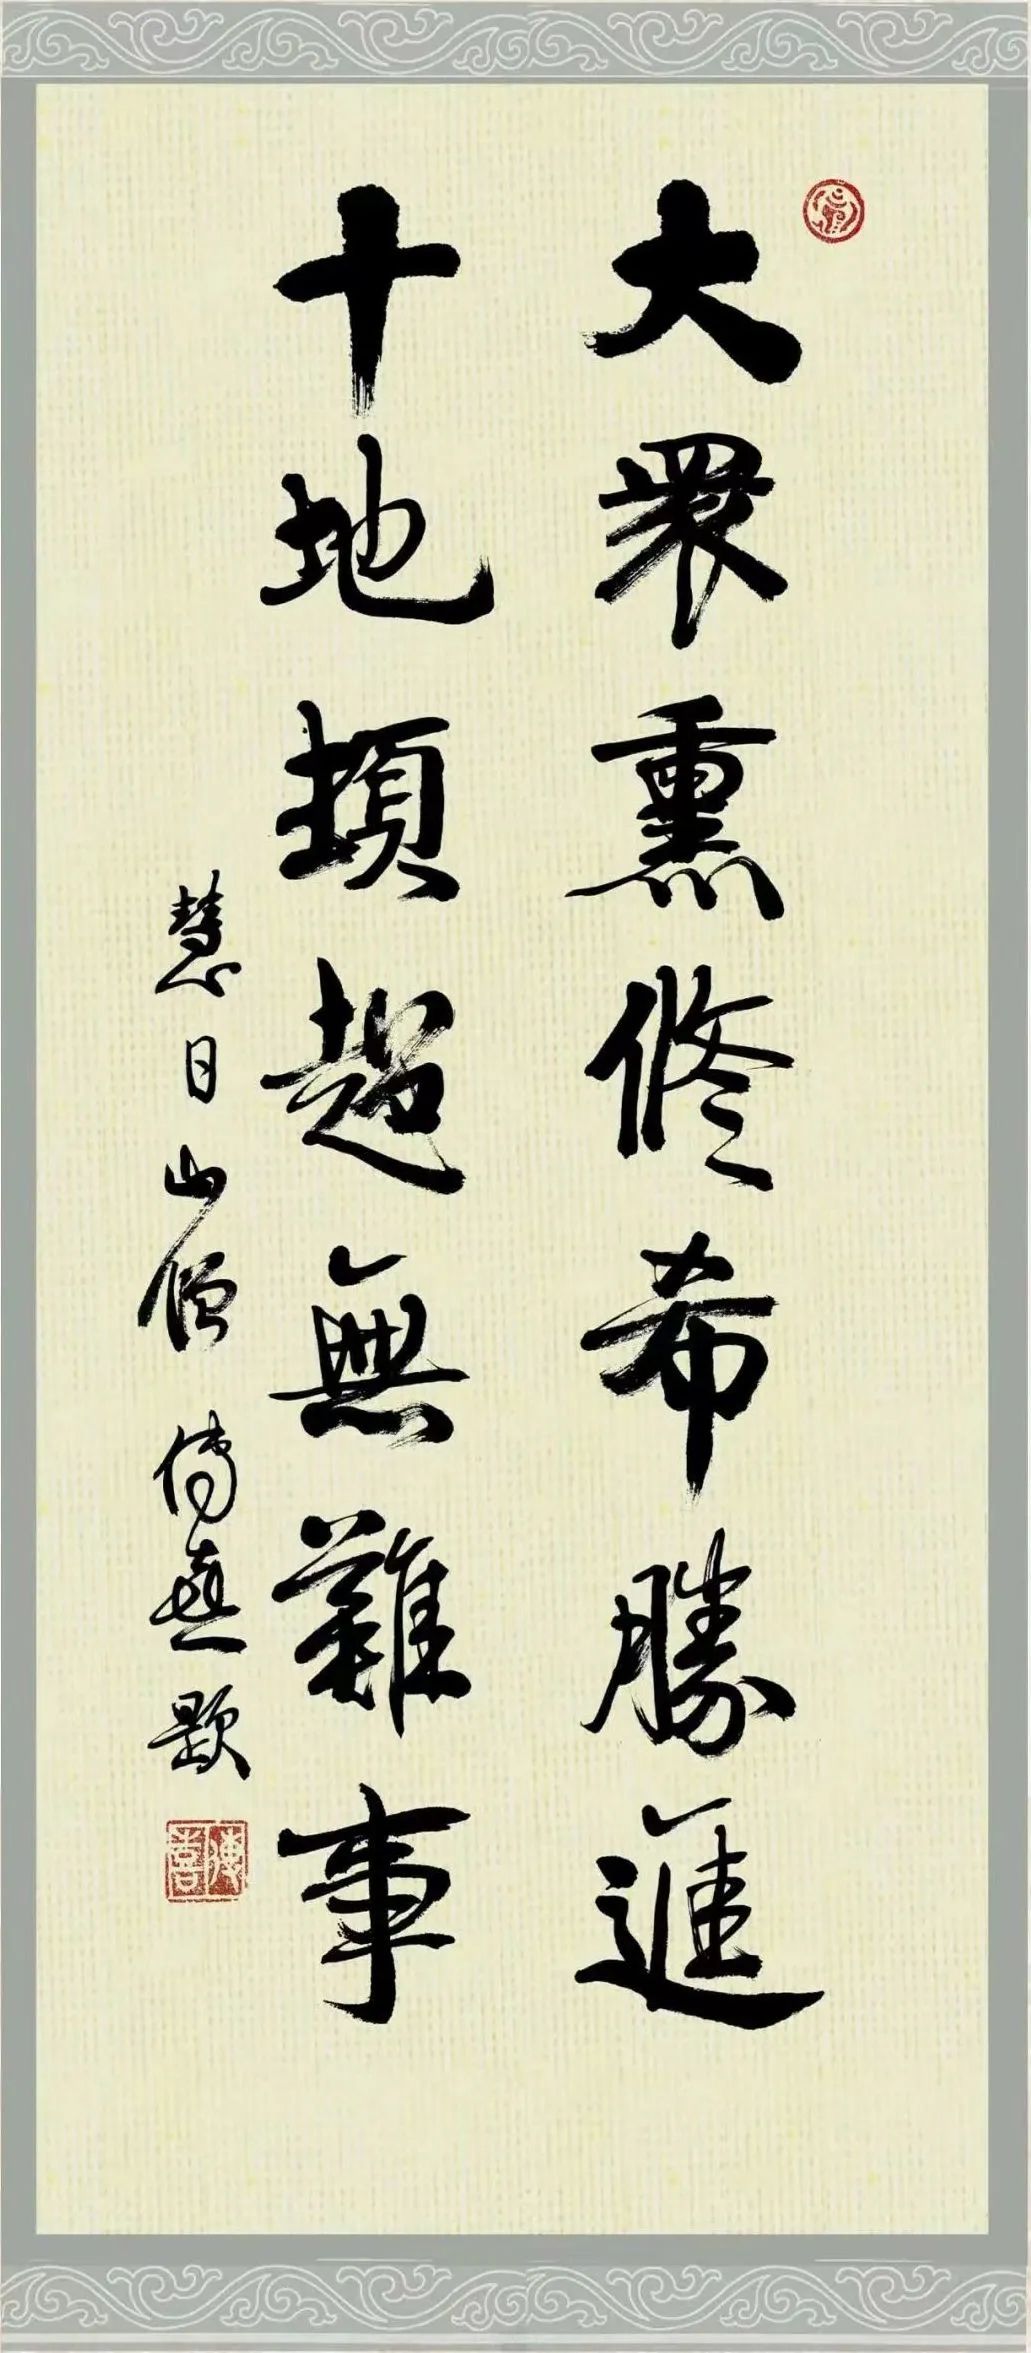 大眾熏修希勝進
十地頓超無難事
慧日山僧 傳喜題
傳喜